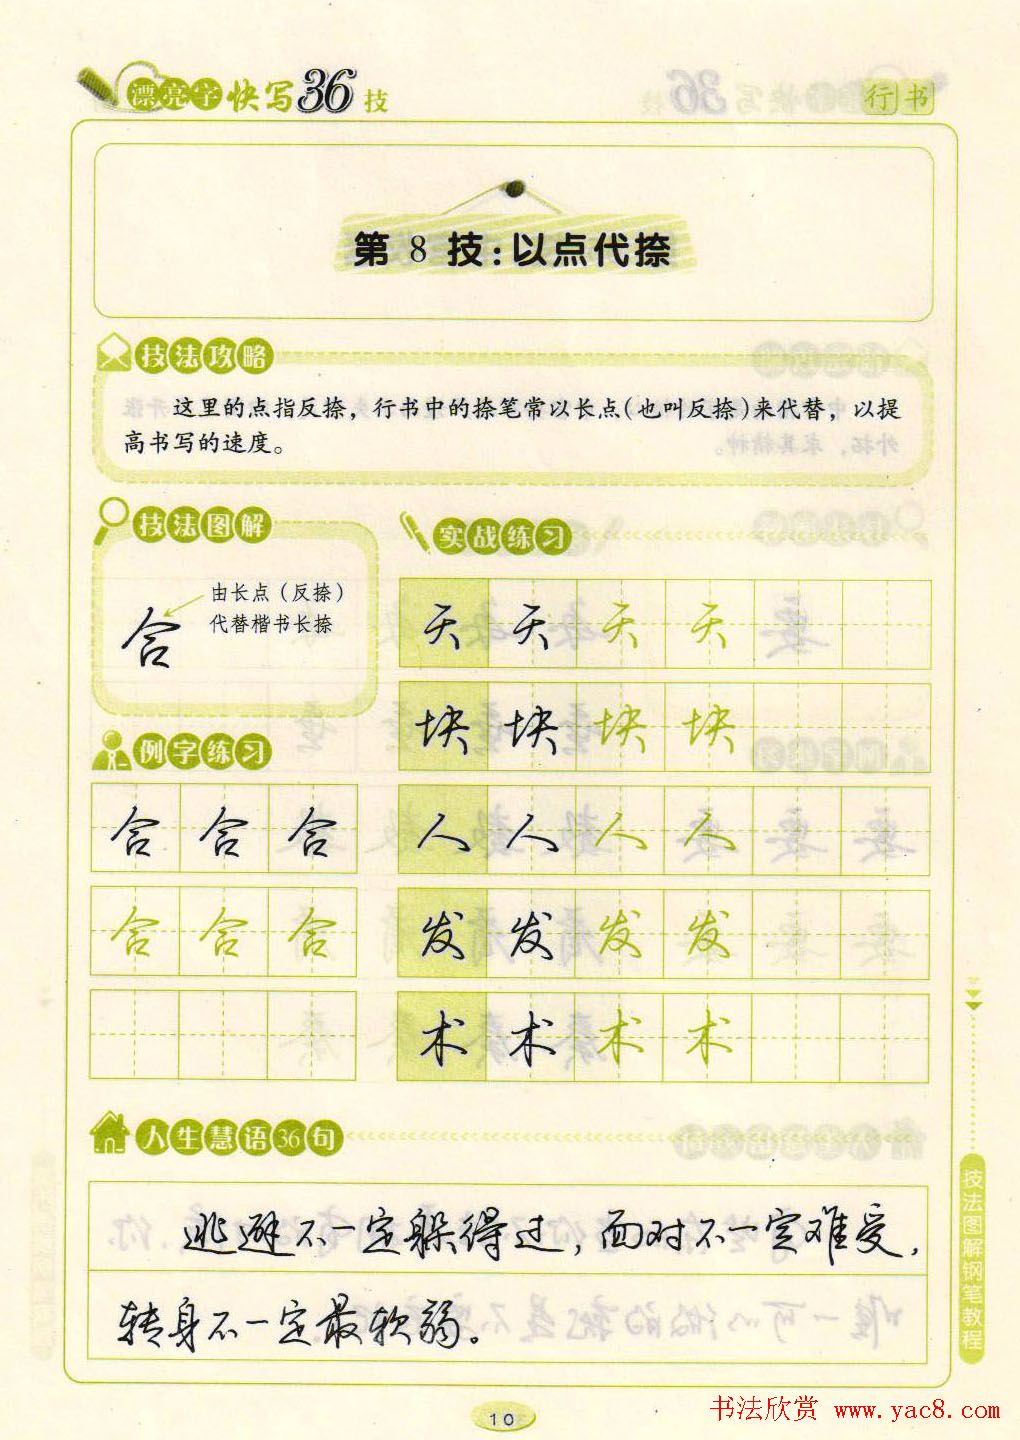 漂亮字快写36技
行书
第 8 技:以点代捺
技法攻略
这里的点指反捺，行书中的捺笔常以长点(也叫反捺)来代替，以提
高书写的速度。
技法图解
由长点（反捺）
代替楷书长捺
合
例字练习
合 合 合
合 合 合
实战练习
天 天 天 天
块 块 块 块
人 人 人 人
发 发 发 发
术 术 术 术
人生慧语36句
逃避不一定躲得过，面对不一定难受，
转身不一定最软弱。
技法图解钢笔教程
10
书法欣赏 www.yac8.com